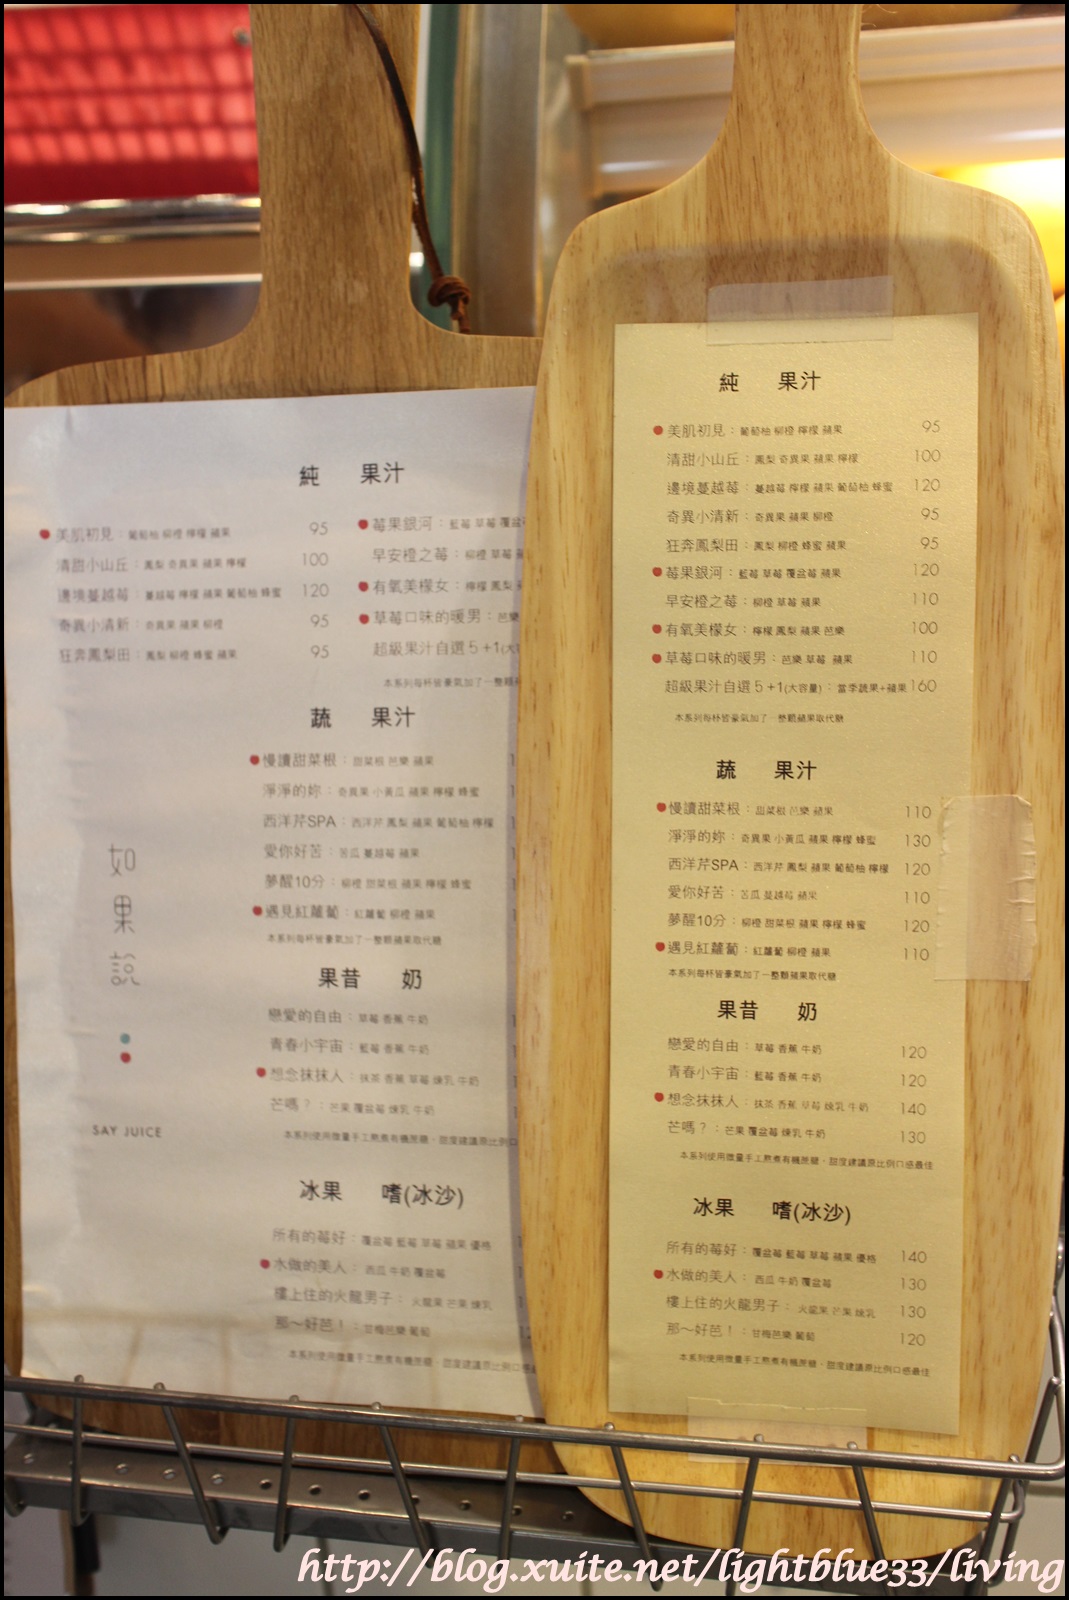 純 果汁
美肌初見：葡萄柚 柳橙 檸檬 蘋果 95
清甜小山丘：鳳梨 奇異果 蘋果 檸檬 100
邊境蔓越莓：蔓越莓 檸檬 蘋果 葡萄柚 蜂蜜 120
奇異小清新：奇異果 蘋果 柳橙 95
狂奔鳳梨田：鳳梨 柳橙 蜂蜜 蘋果 95
莓果銀河：藍莓 草莓 覆盆
早安橙之莓：柳橙 草莓
有氧美檬女：檸檬 鳳梨
草莓口味的暖男：芭樂
超級果汁自選５+1(大
本系列每杯皆豪氣加了一整顆
蔬 果汁
慢讀甜菜根：甜菜根 芭樂 蘋果
淨淨的妳：奇異果 小黃瓜 蘋果 檸檬 蜂蜜
西洋芹SPA：西洋芹 鳳梨 蘋果 葡萄柚 檸檬
愛你好苦：苦瓜 蔓越莓 蘋果
夢醒10分：柳橙 甜菜根 蘋果 檸檬 蜂蜜
遇見紅蘿蔔：紅蘿蔔 柳橙 蘋果
本系列每杯皆豪氣加了一整顆蘋果取代糖
果昔 奶
戀愛的自由：草莓 香蕉 牛奶
青春小宇宙：藍莓 香蕉 牛奶
想念抹抹人：抹茶 香蕉 草莓 煉乳 牛奶
芒嗎？：芒果 覆盆莓 煉乳 牛奶
本系列使用微量手工熬煮有機蔗糖，甜度建議原比例口
冰果 嗜(冰沙)
所有的莓好：覆盆莓 藍莓 草莓 蘋果 優格
水做的美人：西瓜 牛奶 覆盆莓
樓上住的火龍男子：火龍果 芒果 煉乳
那～好芭！：甘梅芭樂 葡萄
本系列使用微量手工熬煮有機蔗糖，甜度建議原比例口感最
如果說
SAY JUICE
純 果汁
美肌初見：葡萄柚 柳橙 檸檬 蘋果 95
清甜小山丘：鳳梨 奇異果 蘋果 檸檬 100
邊境蔓越莓：蔓越莓 檸檬 蘋果 葡萄柚 蜂蜜 120
奇異小清新：奇異果 蘋果 柳橙 95
狂奔鳳梨田：鳳梨 柳橙 蜂蜜 蘋果 95
莓果銀河：藍莓 草莓 覆盆莓 蘋果 120
早安橙之莓：柳橙 草莓 蘋果 110
有氧美檬女：檸檬 鳳梨 蘋果 芭樂 100
草莓口味的暖男：芭樂 草莓 蘋果 110
超級果汁自選５+1(大容量)：當季蔬果+蘋果 160
本系列每杯皆豪氣加了一整顆蘋果取代糖
蔬 果汁
慢讀甜菜根：甜菜根 芭樂 蘋果 110
淨淨的妳：奇異果 小黃瓜 蘋果 檸檬 蜂蜜 130
西洋芹SPA：西洋芹 鳳梨 蘋果 葡萄柚 檸檬 120
愛你好苦：苦瓜 蔓越莓 蘋果 110
夢醒10分：柳橙 甜菜根 蘋果 檸檬 蜂蜜 120
遇見紅蘿蔔：紅蘿蔔 柳橙 蘋果 110
本系列每杯皆豪氣加了一整顆蘋果取代糖
果昔 奶
戀愛的自由：草莓 香蕉 牛奶 120
青春小宇宙：藍莓 香蕉 牛奶 120
想念抹抹人：抹茶 香蕉 草莓 煉乳 牛奶 140
芒嗎？：芒果 覆盆莓 煉乳 牛奶 130
本系列使用微量手工熬煮有機蔗糖，甜度建議原比例口感最佳
冰果 嗜(冰沙)
所有的莓好：覆盆莓 藍莓 草莓 蘋果 優格 140
水做的美人：西瓜 牛奶 覆盆莓 130
樓上住的火龍男子：火龍果 芒果 煉乳 130
那～好芭！：甘梅芭樂 葡萄 120
本系列使用微量手工熬煮有機蔗糖，甜度建議原比例口感最佳
http://blog.xuite.net/lightblue33/living